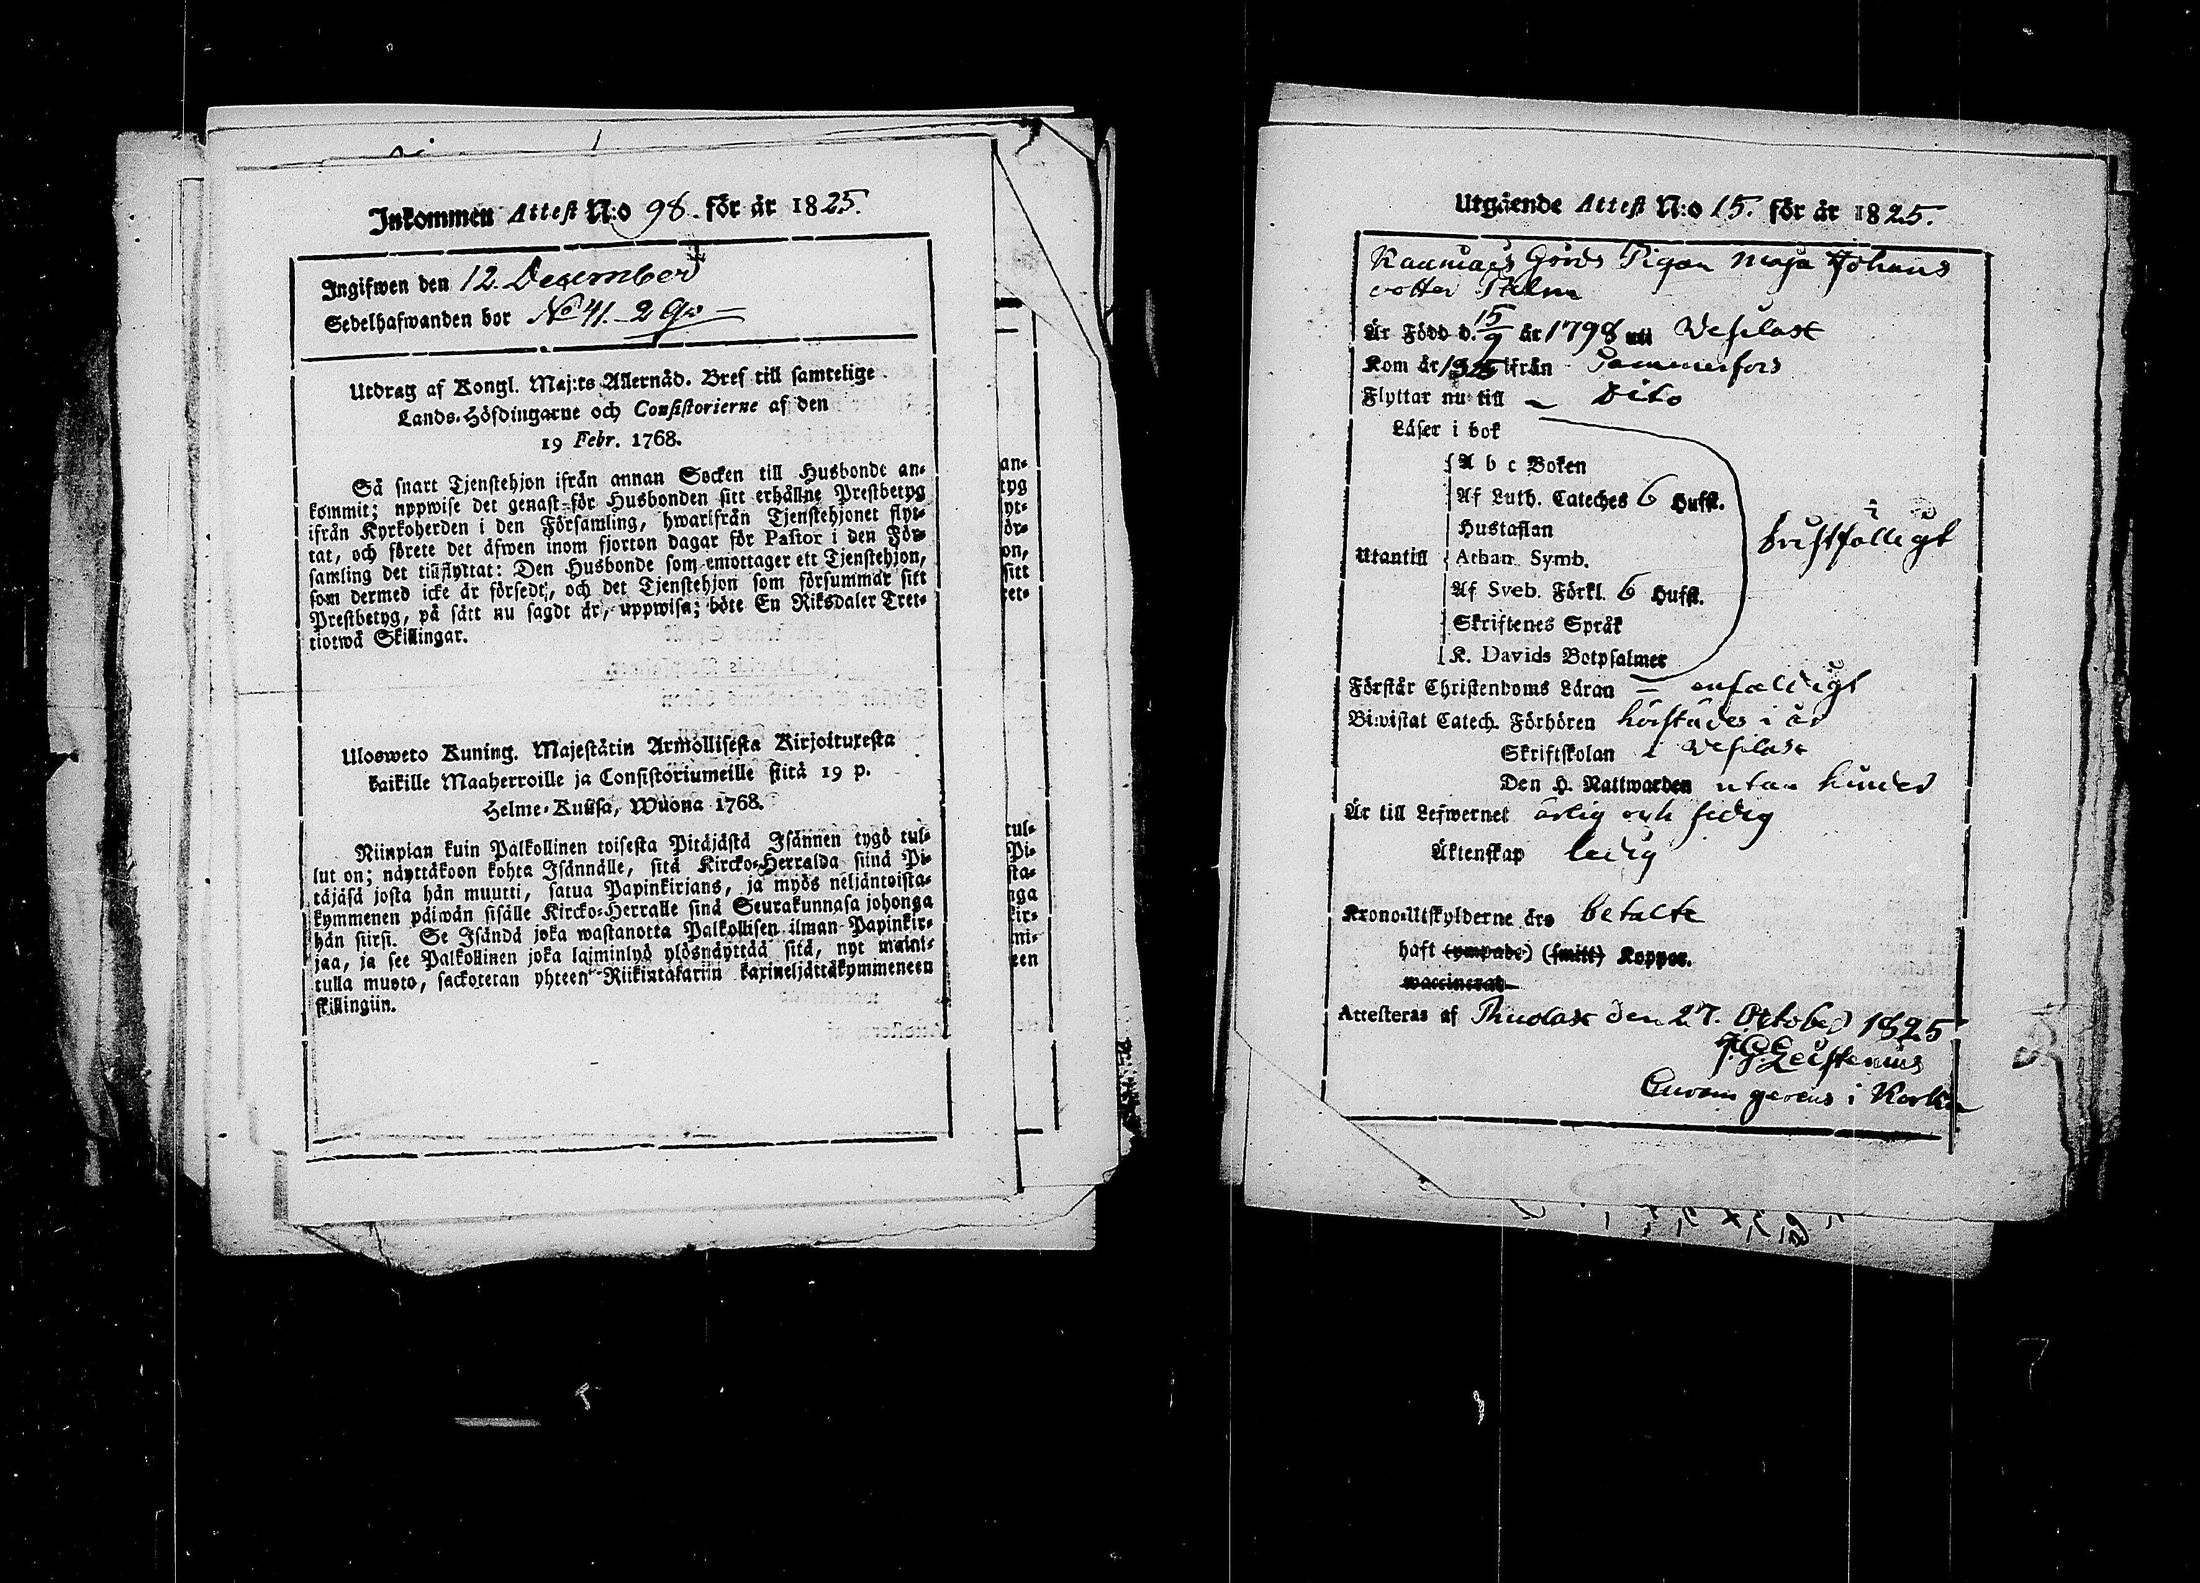 Inkommen Attest N:o 98. för år 1825.
Ingifwen den 12. December
Sedelhafwanden bor No 41. 2 Qv
Utdrag af Kongl. Maj:ts Allernåd. Bref till samtelige
Lands-Höfdingarne och Consistorierne af den
19 Febr. 1768.
Så snart Tjenstehjon ifrån annan Socken till Husbonde an-
kommit; uppwise det genast för Husbonden sitt erhållne Prestbetyg
ifrån Kyrkoherden i den Församling, hwarifrån Tjenstehjonet flyt-
tat, och förete det äfwen inom fjorton dagar för Pastor i den För-
samling det tillflyttat: Den Husbonde som emottager ett Tjenstehjon,
som dermed icke är försedt, och det Tjenstehjon som försummar sitt
Prestbetyg, på sätt nu sagdt är, uppwisa; böte En Riksdaler Tret-
tiotwå Skillingar.
Ulosweto Kuning. Majestätin Armollisesta Kirjoituxesta
kaikille Maaherroille ja Consistoriumeille siitä 19 p.
Helme-Kuusa, Wuona 1768.
Niinpian kuin Palkollinen toisesta Pitäjästä Isännen tygö tul-
lut on; näyttäkoon kohta Isännälle, sitä Kircko-Herralda siinä Pi-
täjäsä josta hän muutti, satua Papinkirjans, ja myös neljäntoista-
kymmenen päiwän sisälle Kircko-Herralle siinä Seurakunnasa johonga
hän siirsi. Se Isändä joka wastanotta Palkollisen ilman Papinkir-
jaa, ja see Palkollinen joka laiminlyö ylösnäyttää sitä, nyt maini-
tulla muoto, sackotetan yhteen Riikintakariin kaxineljättäkymmeneen
skillingiin.
an-
tyg
yt-
ör-
on,
sitt
ret-
tul-
Pi-
sta-
nga
kir-
ni-
een
Utgående Attest N:o 15. för år 1825.
Gårds Pigan Maja Johans
dotter
Är Född d. 15/9 år 1798 uti Vesilax
Kom år 1825 ifrån Tammerfors
Flyttar nu till Dito
Läser i bok
A b c Boken
Af Luth. Cateches 6 Hufst.
Hustaflan
Utantill Athan. Symb.
Af Sveb. Förkl. 6 Hufst.
Skriftenes Språk
K. Davids Botpsalmer
bristfälligt
Förstår Christendoms Läran enfaldigt
Biwistat Catech. Förhören härstädes i år
Skriftskolan i Vesilax
Den H. Nattwarden utan hinder
Är till Lefwernet ärlig och sedig
Äktenskap ledig
Krono-Utskylderne äro betalte
haft (ympade) (smitt) Koppor.
waccinerad
Attesteras af Thuolax den 27. October 1825
Leistenius
Curam gerens i Karkku